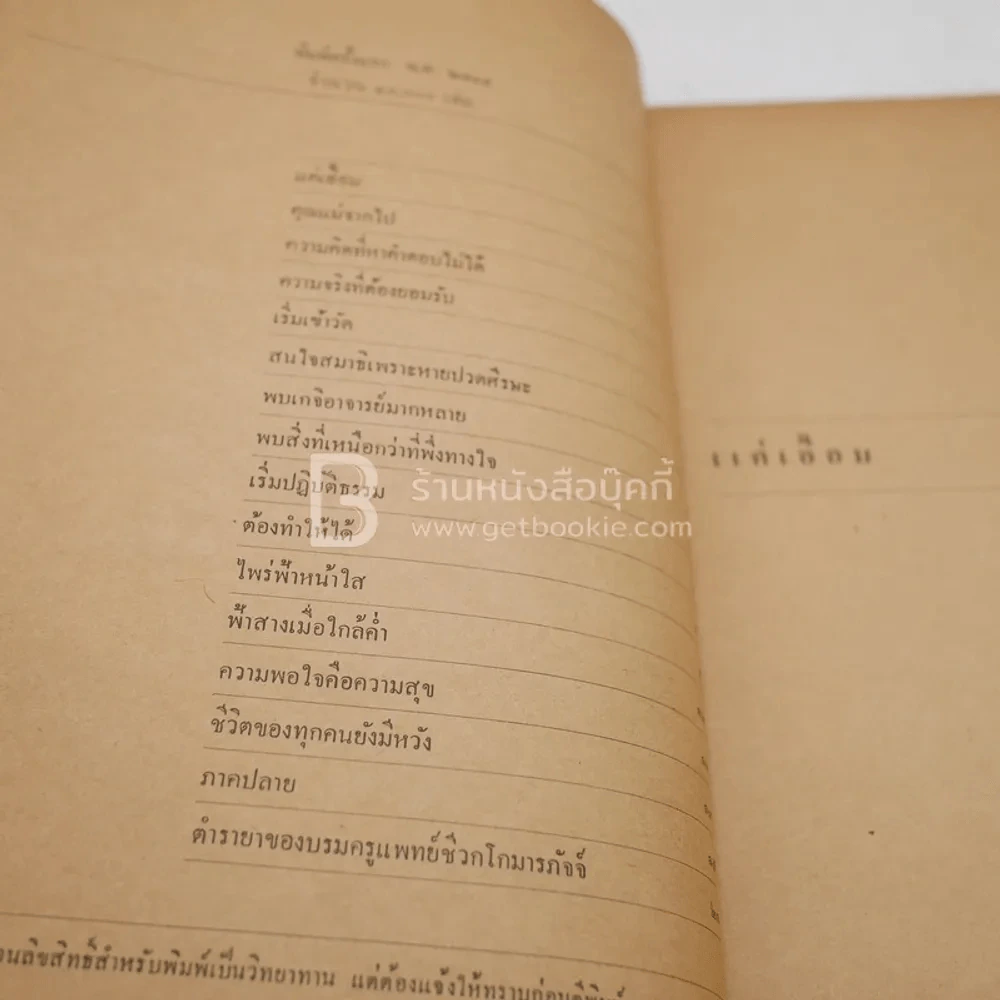 พิมพ์ครั้งแรก พ.ศ.
จำนวน เล่ม
แค่เอื้อม
คุณแม่จากไป
ความคิดที่หาคำตอบไม่ได้
ความจริงที่ต้องยอมรับ
เริ่มเข้าวัด
สนใจสมาธิเพราะหายปวดศีรษะ
พบเกจิอาจารย์มากหลาย
พบสิ่งที่เหนือกว่าที่พึ่งทางใจ
เริ่มปฏิบัติธรรม
ต้องทำให้ได้
ไพร่ฟ้าหน้าใส
ฟ้าสางเมื่อใกล้ค่ำ
ความพอใจคือความสุข
ชีวิตของทุกคนยังมีหวัง
ภาคปลาย
ตำรายาของบรมครูแพทย์ชีวกโกมารภัจจ์
ลิขสิทธิ์สำหรับพิมพ์เป็นวิทยาทาน แต่ต้องแจ้งให้ทราบก่อน
แค่เอื้อม
B ร้านหนังสือบุ๊คกี้
www.getbookie.com